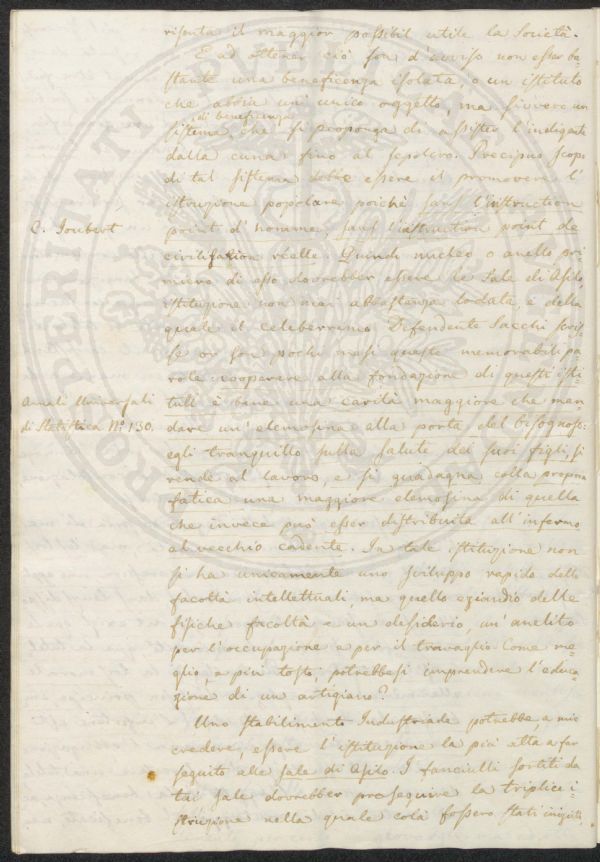 risputa il maggior possibil utile la Società.
E ad ottener ciò son d'avviso non esser ba-
stante una beneficenza isolata, o un istituto
che abbia un unico oggetto, ma siavvere un
di beneficenza
sistema, che si proponga di assister l'indigente
dalla cuna fino al sepolcro. Precipuo scopo
di tal sistema debbe essere il promovere l'
istruzione popolare poichè sans l'instruction
C. Joubert
point d'homme, sans l'instruction point de
civilisation réelle. Quindi nucleo, o anello pri-
miero di esso dovrebber essere le Sale di Asilo,
istituzione non mai abbastanza lodata e della
quale il celeberrimo Defendente Sacchi scris-
se or son pochi mesi queste memorabili pa-
role cooperare alla fondazione di questi isti-
Annali Universali
di Statistica N.º 130.
tuti è bene una carità maggiore che man-
dare un'elemosina alla porta del bisognoso:
egli tranquillo sulla salute dei suoi figli, si
rende al lavoro, e si guadagna colla propria
fatica una maggiore elemosina di quella
che invece può esser distribuita all'infermo
al vecchio cadente. In tale istituzione non
si ha unicamente uno sviluppo rapido delle
facoltà intellettuali, ma quello eziandio delle
fisiche facoltà, e un desiderio, un'anelito
per l'occupazione e per il travaglio. Come me-
glio, o più tosto potrebbesi imprendere l'educa-
zione di un artigiano?
Uno stabilimento Industriale potrebbe, a mio
credere, essere l'istituzione la più atta a far
seguito alle Sale di Asilo. I fanciulli sortiti da
tai Sale dovrebber proseguire la triplice i-
struzione nella quale colà fossero stati
PROSPERITATI